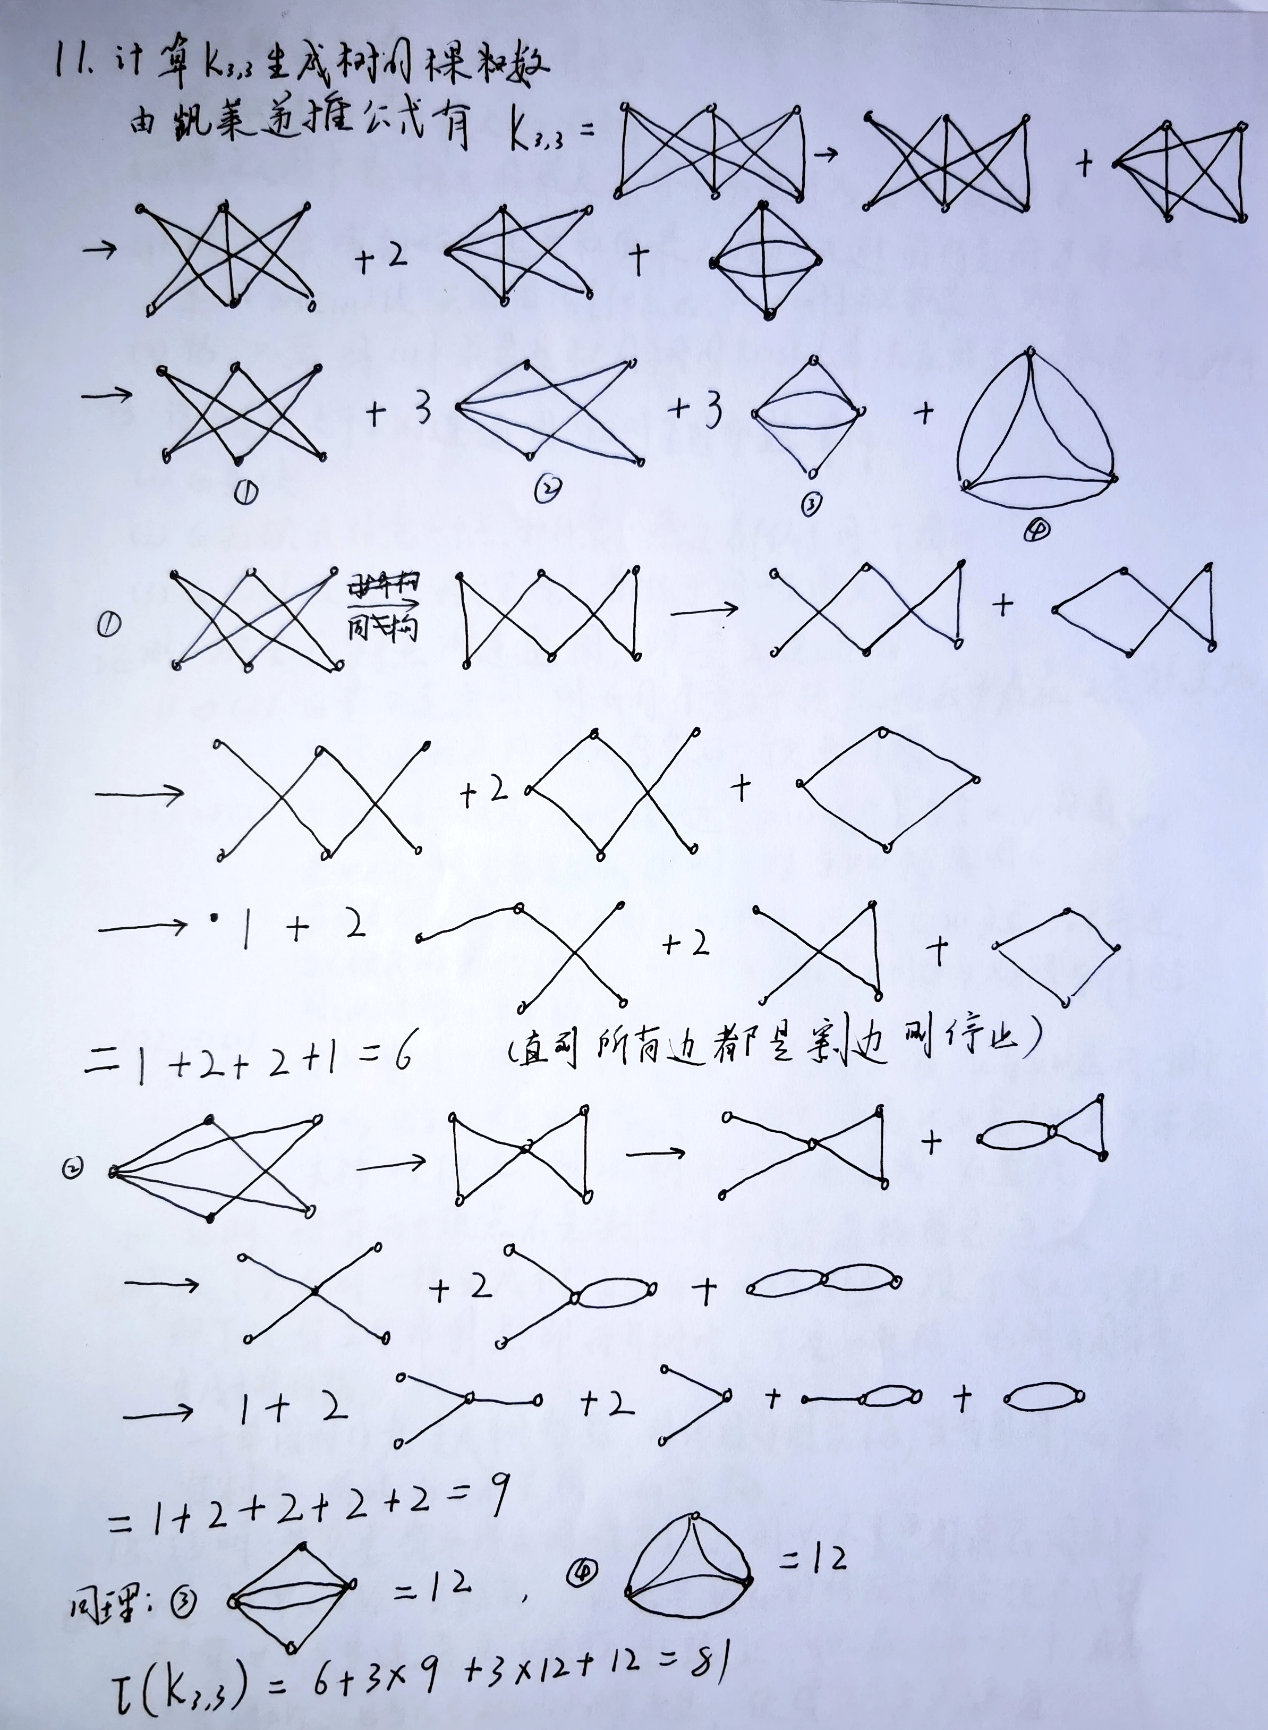 11. 计算K₃,₃生成树的棵和数
由凯莱递推公式有 K₃,₃ = → +
→ +2 +
→ + 3 +3 +
① ② ③ ④
① 同构 → +
→ +2 +
→ 1 + 2 +2 +
= 1+2+2+1 = 6 (直到所有边都是割边则停止)
② → → +
→ +2 +
→ 1+2 +2 + +
= 1+2+2+2+2 = 9
同理: ③ = 12 , ④ = 12
τ(K₃,₃) = 6+3×9+3×12+12 = 81